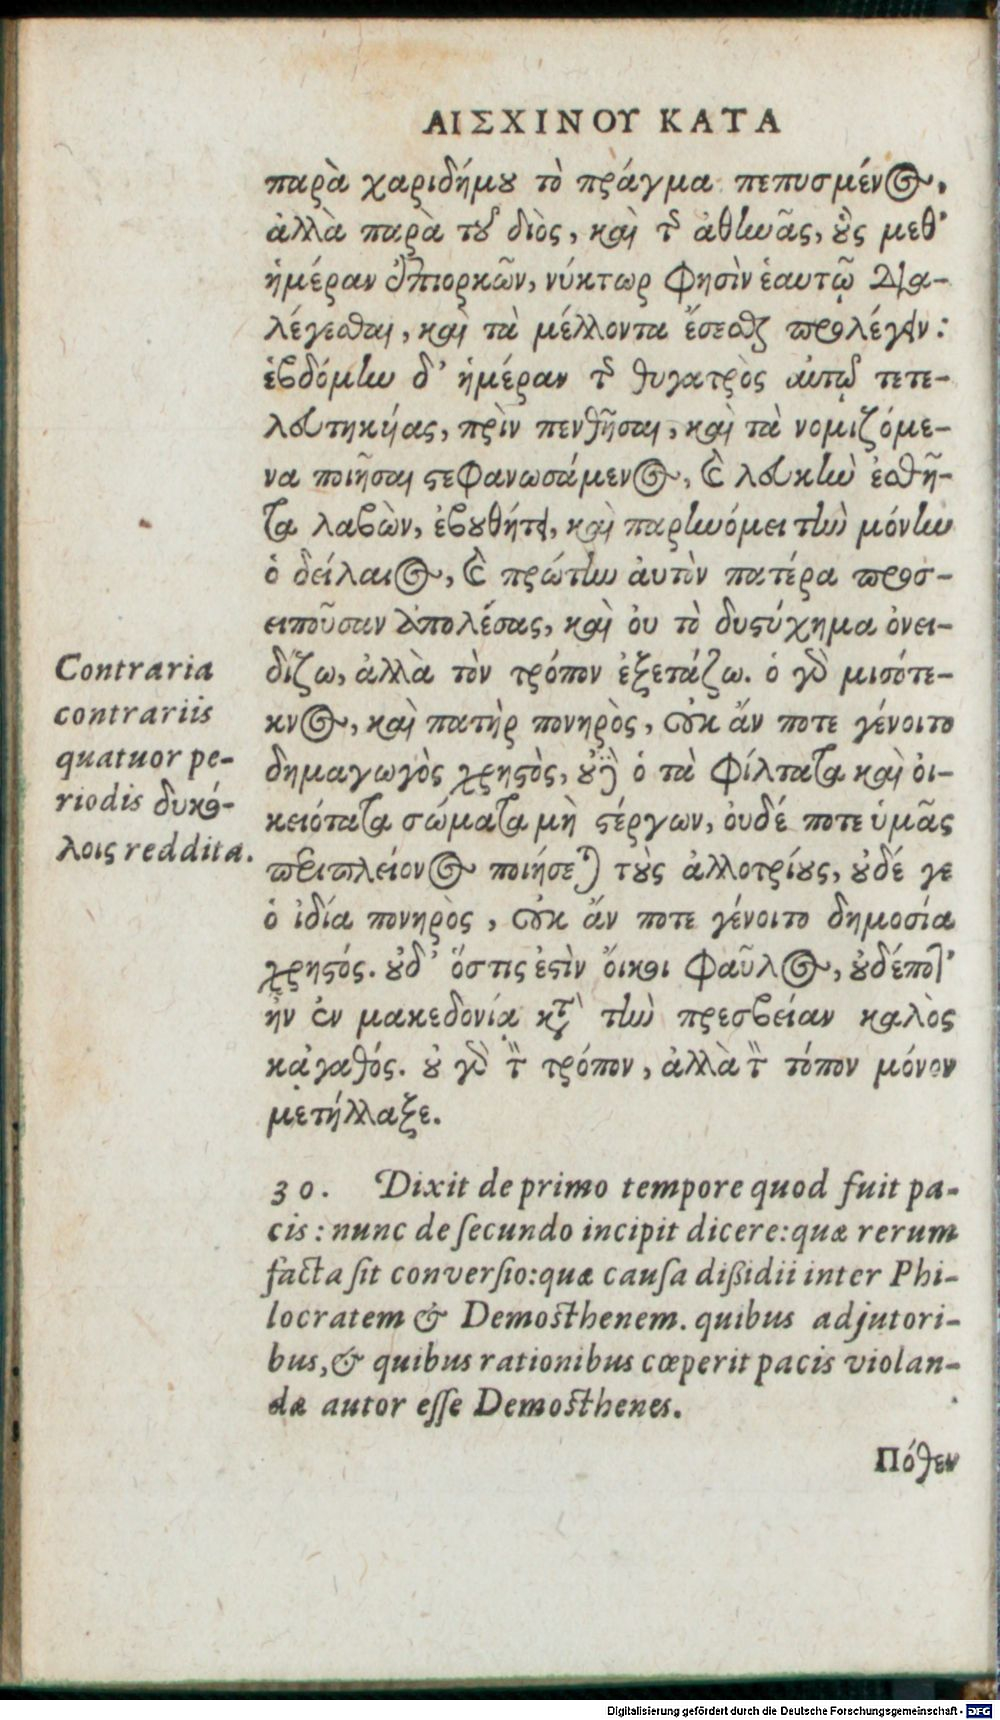 ΑΙΣΧΙΝΟΥ ΚΑΤΑ
παρὰ χαριδήμου τὸ πράγμα πεπυσμένος,
ἀλλὰ παρὰ τοῦ διὸς, καὶ τῆς ἀθηνᾶς, οὓς μεθ'
ἡμέραν ἐπιορκῶν, νύκτωρ φησὶν ἑαυτῷ δια-
λέγεσθαι, καὶ τὰ μέλλοντα ἔσεσθαι προλέγειν:
ἑβδόμην δ' ἡμέραν τῆς θυγατρὸς αὐτῷ τετε-
λευτηκυίας, πρὶν πενθῆσαι, καὶ τὰ νομιζόμε-
να ποιῆσαι στεφανωσάμενος, καὶ λευκὴν ἐσθῆ-
τα λαβὼν, ἐβουθύτει, καὶ παρηνόμει τὴν μόνην
ὁ δείλαιος, καὶ πρώτην αὐτὸν πατέρα προσ-
ειποῦσαν ἀπολέσας, καὶ οὐ τὸ δυστύχημα ὀνει-
δίζω, ἀλλὰ τὸν τρόπον ἐξετάζω. ὁ γὰρ μισότε-
κνος, καὶ πατὴρ πονηρὸς, οὐκ ἄν ποτε γένοιτο
δημαγωγὸς χρηστὸς, οὐδὲ ὁ τὰ φίλτατα καὶ οἰ-
κειότατα σώματα μὴ στέργων, οὐδέ ποτε ὑμᾶς
περιπλείονος ποιήσεται τοὺς ἀλλοτρίους, οὐδέ γε
ὁ ἰδία πονηρὸς, οὐκ ἄν ποτε γένοιτο δημοσία
χρηστός. οὐδ' ὅστις ἐστὶν ὄικοι φαῦλος, οὐδέποτ'
ἦν ἐν μακεδονίᾳ κατὰ τὴν πρεσβείαν καλὸς
κἀγαθός. οὐ γὰρ τὸν τρόπον, ἀλλὰ τὸν τόπον μόνον
μετήλλαξε.
Contraria
contrariis
quatuor pe-
riodis δυκό-
λοις reddita.
30. Dixit de primo tempore quod fuit pa-
cis: nunc de secundo incipit dicere: quæ rerum
facta sit conversio: quæ causa dißidii inter Phi-
locratem & Demosthenem. quibus adjutori-
bus, & quibus rationibus cœperit pacis violan-
dæ autor esse Demosthenes.
Πόθεν
Digitalisierung gefördert durch die Deutsche Forschungsgemeinschaft - DFG